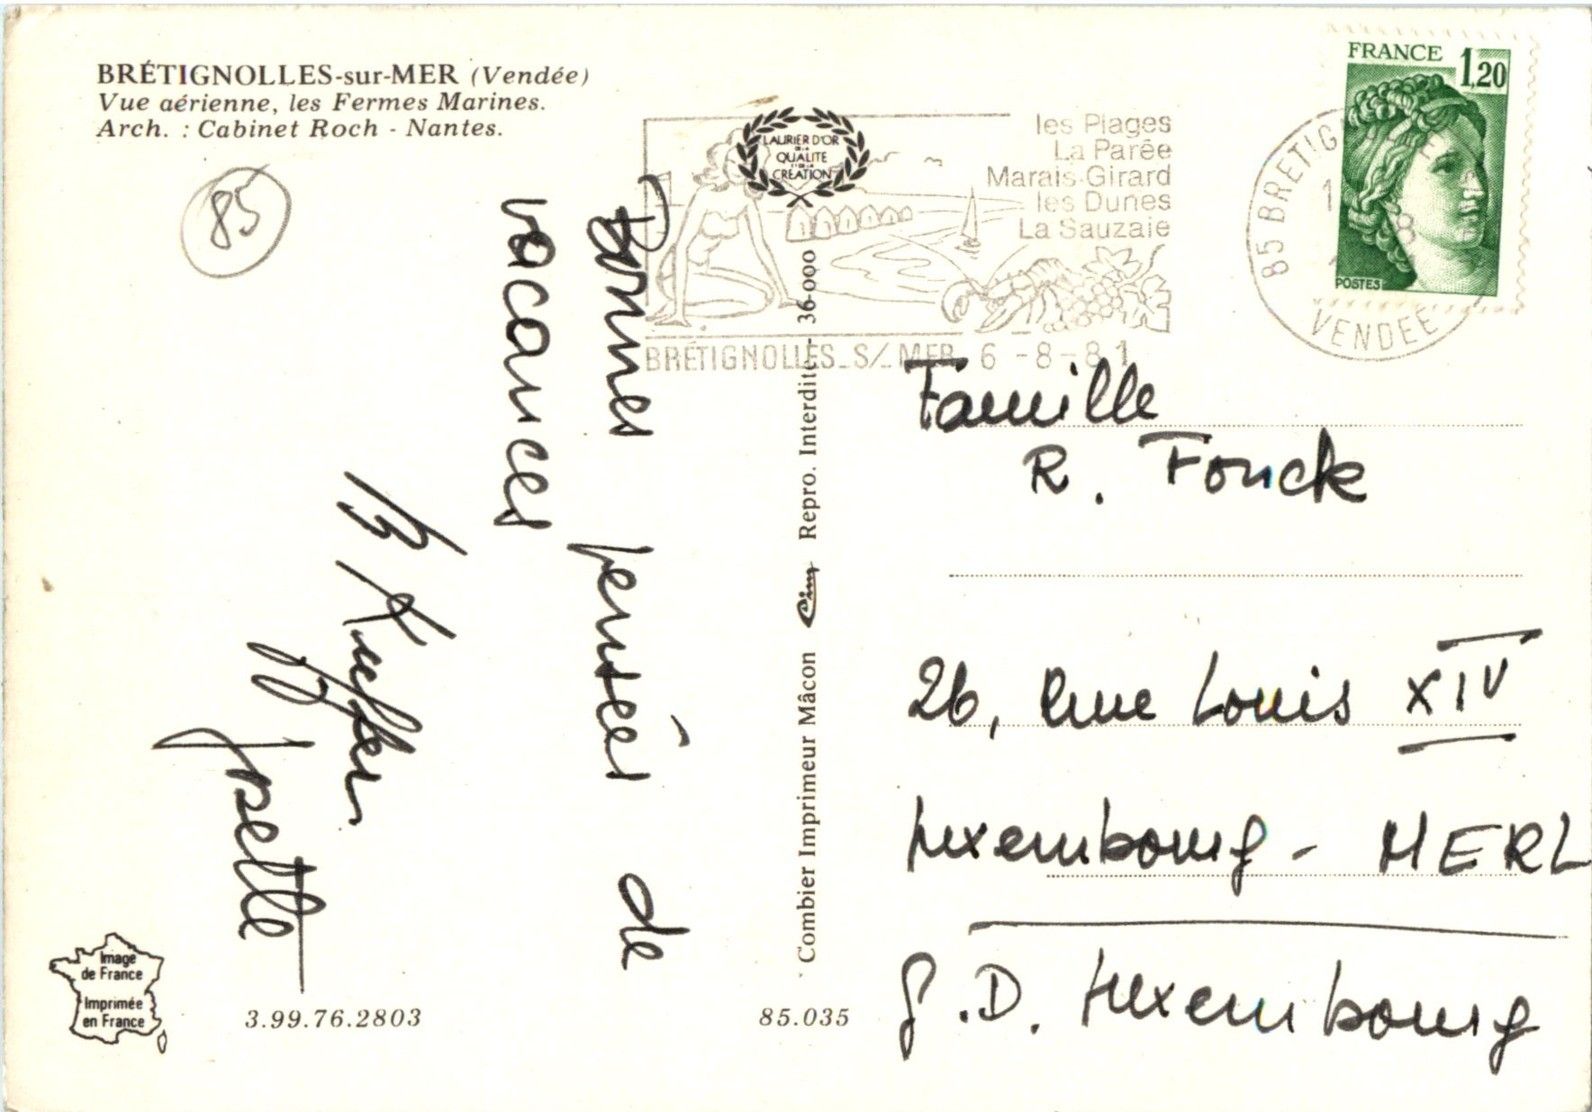 BRÉTIGNOLLES-sur-MER (Vendée)
Vue aérienne, les Fermes Marines.
Arch. : Cabinet Roch - Nantes.
85
LAURIER D'OR
DE LA
QUALITE
ET DE LA
CREATION
les Plages
La Parée
Marais-Girard
les Dunes
La Sauzaie
BRÉTIGNOLLES_S/_MER 6 -8-81
85 BRETIG
VENDEE
FRANCE
1,20
POSTES
Bonnes pensées de
vacances
Josette
Famille
R. Fonck
26, Rue Louis XIV
Luxembourg - MERL
G.D. Luxembourg
Combier Imprimeur Mâcon Cim Repro. Interdite - 36-000
Image
de France
Imprimée
en France
3.99.76.2803
85.035